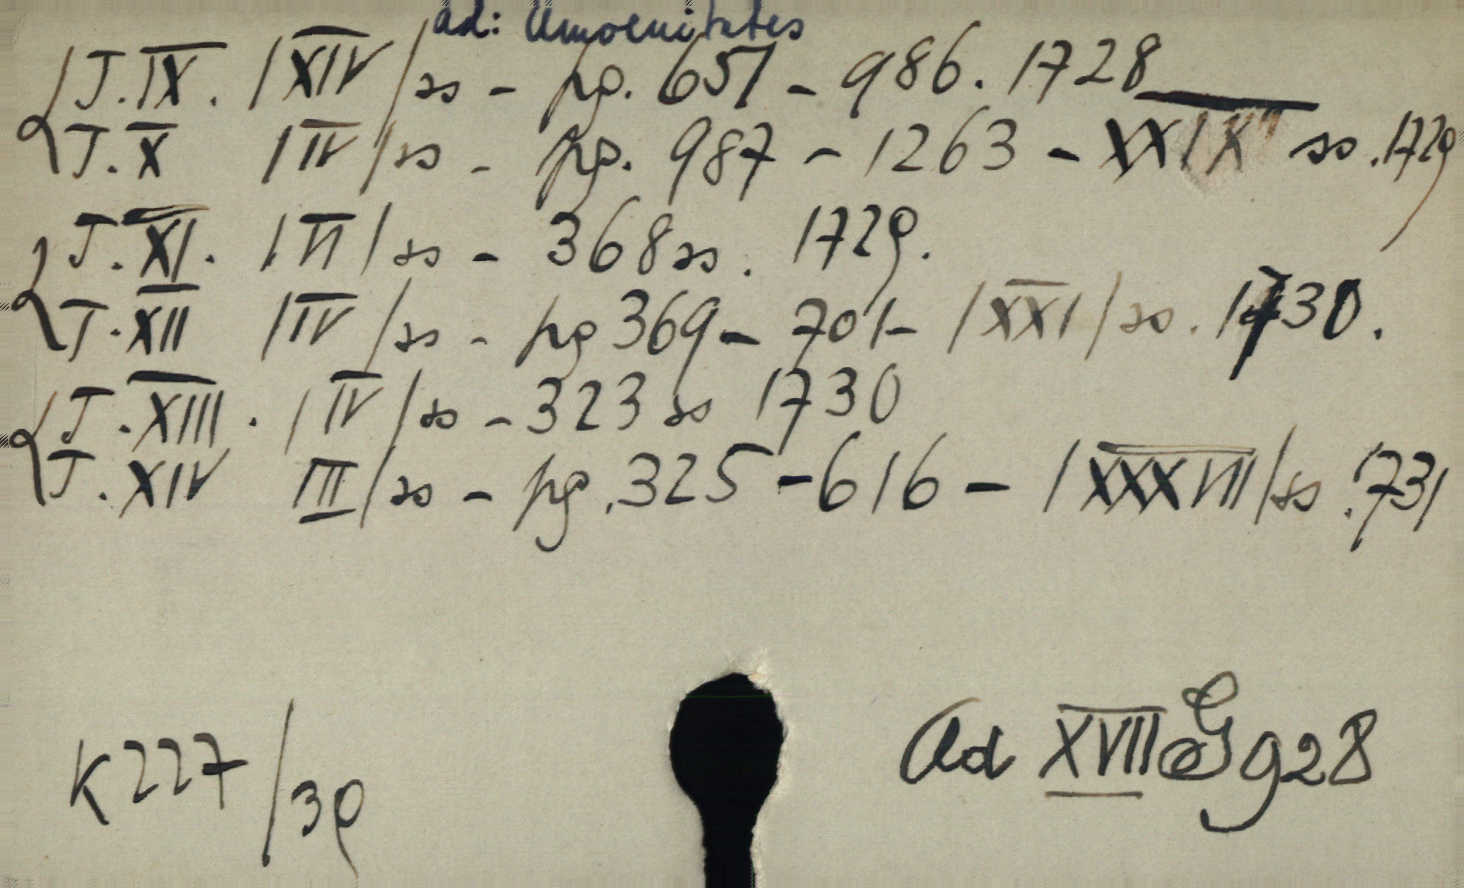 ad: Amoenitates
T. IX. |XIV| ss - pg. 651 - 986. 1728
T. X |IV| ss - pg. 987 - 1263 - XXIX ss. 1729
T. XI. |VI| ss - 368 ss. 1729.
T. XII |IV| ss - pg 369 - 701 - |XXI| ss. 1730.
T. XIII. |IV| ss - 323 ss 1730
T. XIV III| ss - pg. 325 - 616 - |XXXVII| ss. 1731
K 227/39
Ad XVII G 928